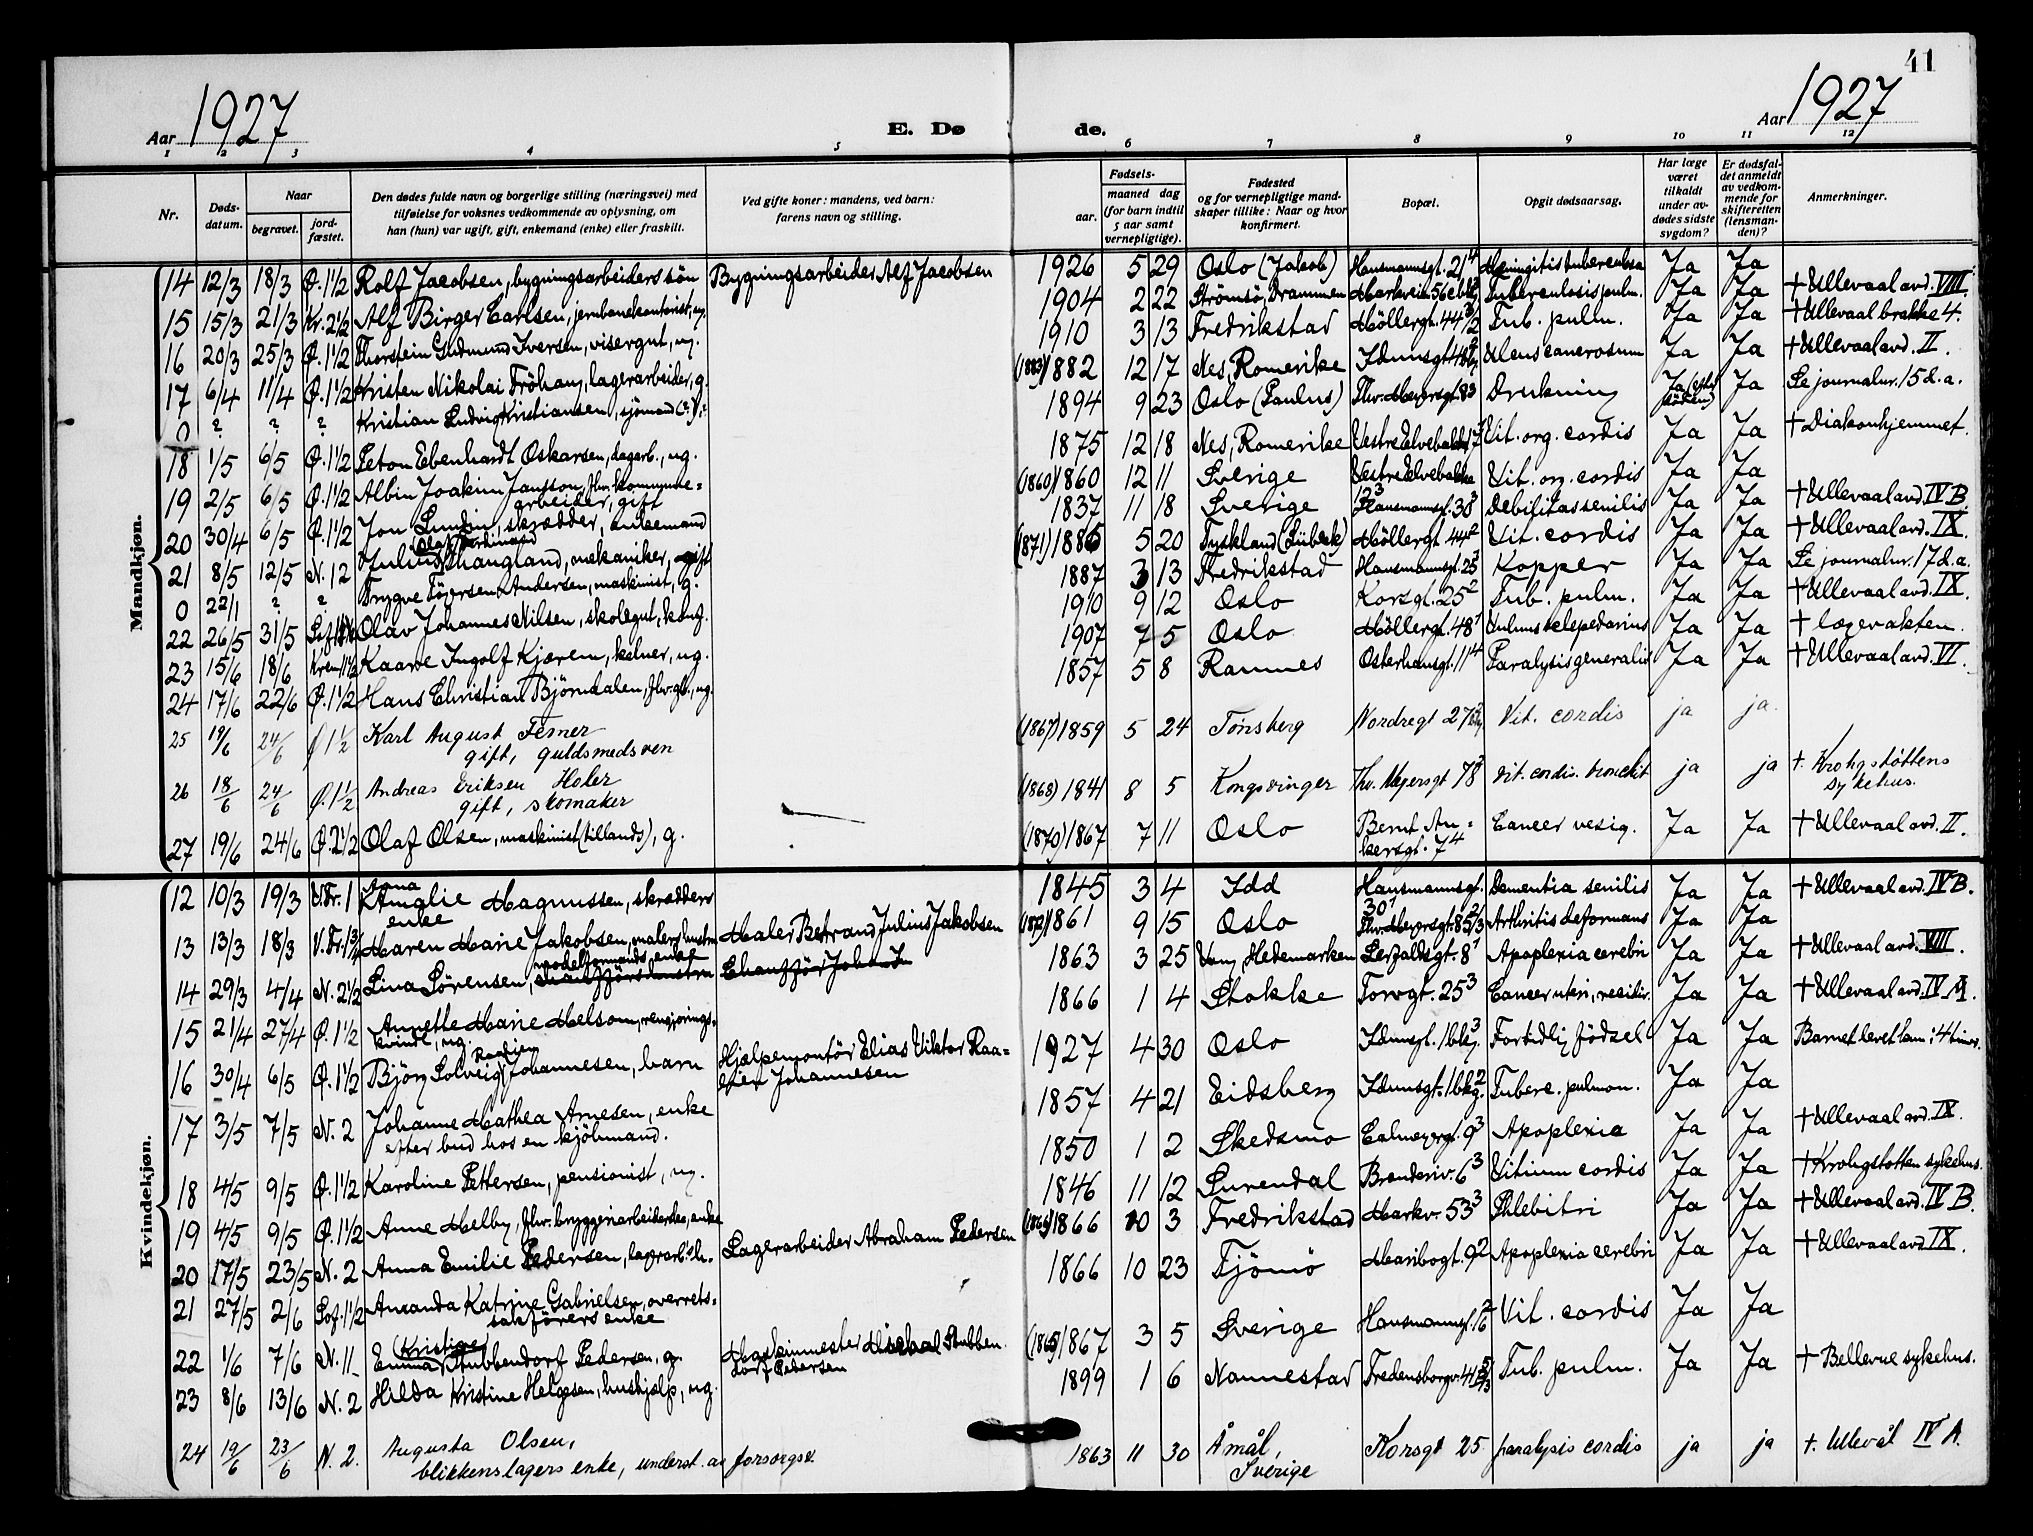 41
Aar 1927
E. Dø de.
Aar 1927
1 2 3 4 5 6 7 8 9 10 11 12
Nr.
Døds-datum.
Naar
begravet.
jord-fæstet.
Den dødes fulde navn og borgerlige stilling (næringsvei) med tilføielse for voksnes vedkommende av oplysning, om han (hun) var ugift, gift, enkemand (enke) eller fraskilt.
Ved gifte koner: mandens, ved barn: farens navn og stilling.
Fødsels-
aar.
maaned dag
(for barn indtil 5 aar samt vernepligtige).
Fødested og for vernepligtige mandskaper tillike: Naar og hvor konfirmert.
Bopæl.
Opgit dødsaarsag.
Har læge været tilkaldt under avdødes sidste sygdom?
Er dødsfaldet anmeldt av vedkommende for skifteretten (lensmanden)?
Anmerkninger.
Mandkjøn.
14 12/3 18/3 Ø. 1 1/2 Rolf Jacobsen, bygningsarbeiders søn Bygningsarbeider Alf Jacobsen 1926 5 29 Oslo (Jakob) Hausmannsgt. 21 4 Meningitis tuberculosa Ja Ja
15 15/3 21/3 Kr. 2 1/2 Alf Birger Carlsen, jernbanekontorist, ug. 1904 2 22 Strømsø, Drammen Markvein 56 Tuberculosis pulm. Ja Ja + Ullevaal avd. VIII.
16 20/3 25/3 Ø. 1 1/2 Thorstein Gudmund Iversen, visergut, ug. 1910 3 13 Fredrikstad Møllergt. 44 Tub. pulm. Ja Ja + Ullevaal brakke 4.
17 6/4 11/4 Ø. 1 1/2 Kristen Nikolai Frøhaug, lagerarbeider, g. (1883) 1882 12 17 Nes, Romerike Idunsgt. Ulcus cancrosum Ja Ja + Ullevaal avd. II.
0 ? ? ? Kristian Ludvig Kristiansen, sjømand 1894 9 23 Oslo (Paulus) Thv. Meyersgt. 83 Drukning Ja Ja Se journalnr. 15 d. a.
18 1/5 6/5 Ø. 1 1/2 Peton Ebenhardt Oskarsen, dagarb., ug. 1875 12 18 Nes, Romerike Vestre Elvebakke Vit. org. cordis Ja Ja + Diakonhjemmet.
19 2/5 6/5 Ø. 1 1/2 Albin Joakim Jansson, fhv. kommune=
arbeider, gift (1860) 1860 12 11 Sverige Vestre Elvebakke Vit. org. cordis Ja Ja
20 30/4 6/5 Ø. 1 1/2 Jon Lundin, skrædder, enkemand 1837 11 18 Sverige Hausmannsgt. 38 Debilitas senilis Ja Ja + Ullevaal avd. IV B
21 8/5 12/5 N. 12 Julius Olaf Ferdinand Thaugland, mekaniker, gift (1871) 1886 5 20 Tyskland (Lübeck) Møllergt. 44 2 Vit. cordis Ja Ja + Ullevaal avd. IX.
0 22/1 ? ? Trygve Andersen, maskinist, g. 1887 3 13 Fredrikstad Hausmannsgt. 25 Kopper Ja Ja Se journalnr. 17 d. a.
22 26/5 31/5 Olav Johannes Nilsen, skolegut, 1910 9 12 Oslo Korsgt. 25 2 Tub. pulm. Ja Ja + Ullevaal avd. IX.
23 15/6 18/6 Krem. 11 1/2 Kaare Ingolf Kjærem, kelner, ug. 1907 7 5 Oslo Møllergt. 48 1 Ja Ja + lægevakten.
24 17/6 22/6 Ø. 1 1/2 Hans Christian Bjørndalen, ug. 1857 5 8 Ramnes Osterhausgt. 11 4 Paralysis generalis Ja Ja + Ullevaal avd. VI.
25 19/6 24/6 Ø 1 1/2 Karl August Ferner
gift, guldsmedsven (1867) 1859 5 24 Tønsberg Nordregt 27 Vit. cordis ja ja.
26 18/6 24/6 Ø. 1 1/2 Andreas Eriksen Holer
gift, skomaker (1868) 1841 8 5 Kongsvinger Thv. Meyersgt 78 vit. cordis. bronchit ja ja +. Krohgstøttens
sykehus.
27 19/6 24/6 Ø. 2 1/2 Olaf Olsen, maskinist (tillands), g. (1870) 1867 7 11 Oslo Bernt An=
kersgt. 7 4 Cancer vesig. Ja Ja + Ullevaal avd. II.
Kvindekjøn.
12 10/3 19/3 V. Fr. 1 Anna Amalie Magnussen, skrædders
enke 1845 3 4 Idd Hausmannsgt.
30 1 Dementia senilis Ja Ja + Ullevaal avd. IV B.
13 13/3 18/3 V. Fr. Maren Marie Jakobsen, malers hustru Maler Betrand Julius Jakobsen 1861 9 15 Oslo Thv. Meyersgt. 85 Arthritis deformans Ja Ja
14 29/3 4/4 N. 2 1/2 Lina Sørensen, enke 1863 3 25 Vang, Hedemarken Seifaldsgt. 8 1 Apoplexia cerebri Ja Ja + Ullevaal avd. VIII.
15 21/4 27/4 Ø. 1 1/2 Annette Marie Melsom, rengjørings=
kvinde, ug. 1866 1 4 Stokke Torvgt. 25 3 Cancer uteri, recidiv. Ja Ja + Ullevaal avd. IV A.
16 30/4 6/5 Ø. 1 1/2 Bjørg Solveig Johannesen, barn Hjælpemontør Elias Viktor Raa=
Johannesen 1927 4 30 Oslo Idunsgt. 1 bkg. 3 Fortidlig fødsel Ja Ja Barnet levet kun i 4 timer.
17 3/5 7/5 N. 2 Johanne Mathea Arnesen, enke
efter bud hos en kjøbmand. 1857 4 21 Eidsberg Idunsgt. 1 bkg. 2 Tuberc. pulmon. Ja Ja
18 4/5 9/5 Ø. 1 1/2 Karoline Pettersen, pensionist, ug. 1850 1 2 Skedsmo Calmeyergt. 9 3 Apoplexia Ja Ja + Ullevaal avd. IX.
19 4/5 9/5 Ø. 1 1/2 Anne Melby, fhv. bryggeriarbeiderske, enke 1846 11 12 Surendal Brenneriv. 6 3 Vitium cordis Ja Ja + Krohgstøtten sykehus.
20 17/5 23/5 N. 2 Anna Emilie Pedersen, lagerarb. h. Lagerarbeider Abraham Pedersen (1866) 1866 10 3 Fredrikstad Markv. 53 3 Phlebitri Ja Ja + Ullevaal avd. IV B.
21 27/5 2/6 Sof. 1 1/2 Amanda Katrine Gabrielsen, overrets=
sakførers enke 1866 10 23 Tjømø Maribogt. 9 2 Apoplexia cerebri Ja Ja + Ullevaal avd. IX.
22 1/6 7/6 N. 11 Emma Kristine Stubbendorf Pedersen, g. Maskinmester Michael Stubben
dorf Pedersen (1865) 1867 3 5 Sverige Hausmannsgt. 16 Vit. cordis Ja Ja
23 8/6 13/6 N. 2 Hilda Kristine Helgesen, hushjælp, ug. 1899 1 6 Nannestad Fredensborgv. 41 Tub. pulm. Ja Ja + Bellevue sykehus.
24 19/6 23/6 N. 2. Augusta Olsen,
blikkenslagers enke, underst. av forsorgsv. 1863 11 30 Åmål,
Sverige Korsgt 25 paralysis cordis ja ja +. Ullevål IV A.